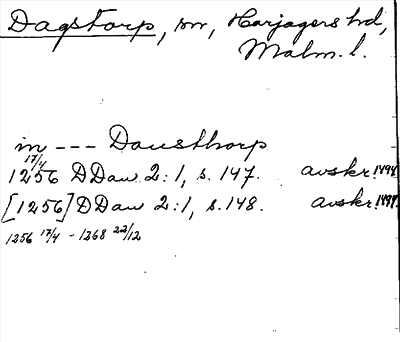 Dagstorp, sn, Harjagers hd,
Malm. l.
in --- Dausthorp
17/4
1256 DDan 2:1, s. 147. avskr. 1494
[1256] DDan 2:1, s. 148. avskr. 1494
1256 17/4 - 1268 22/12